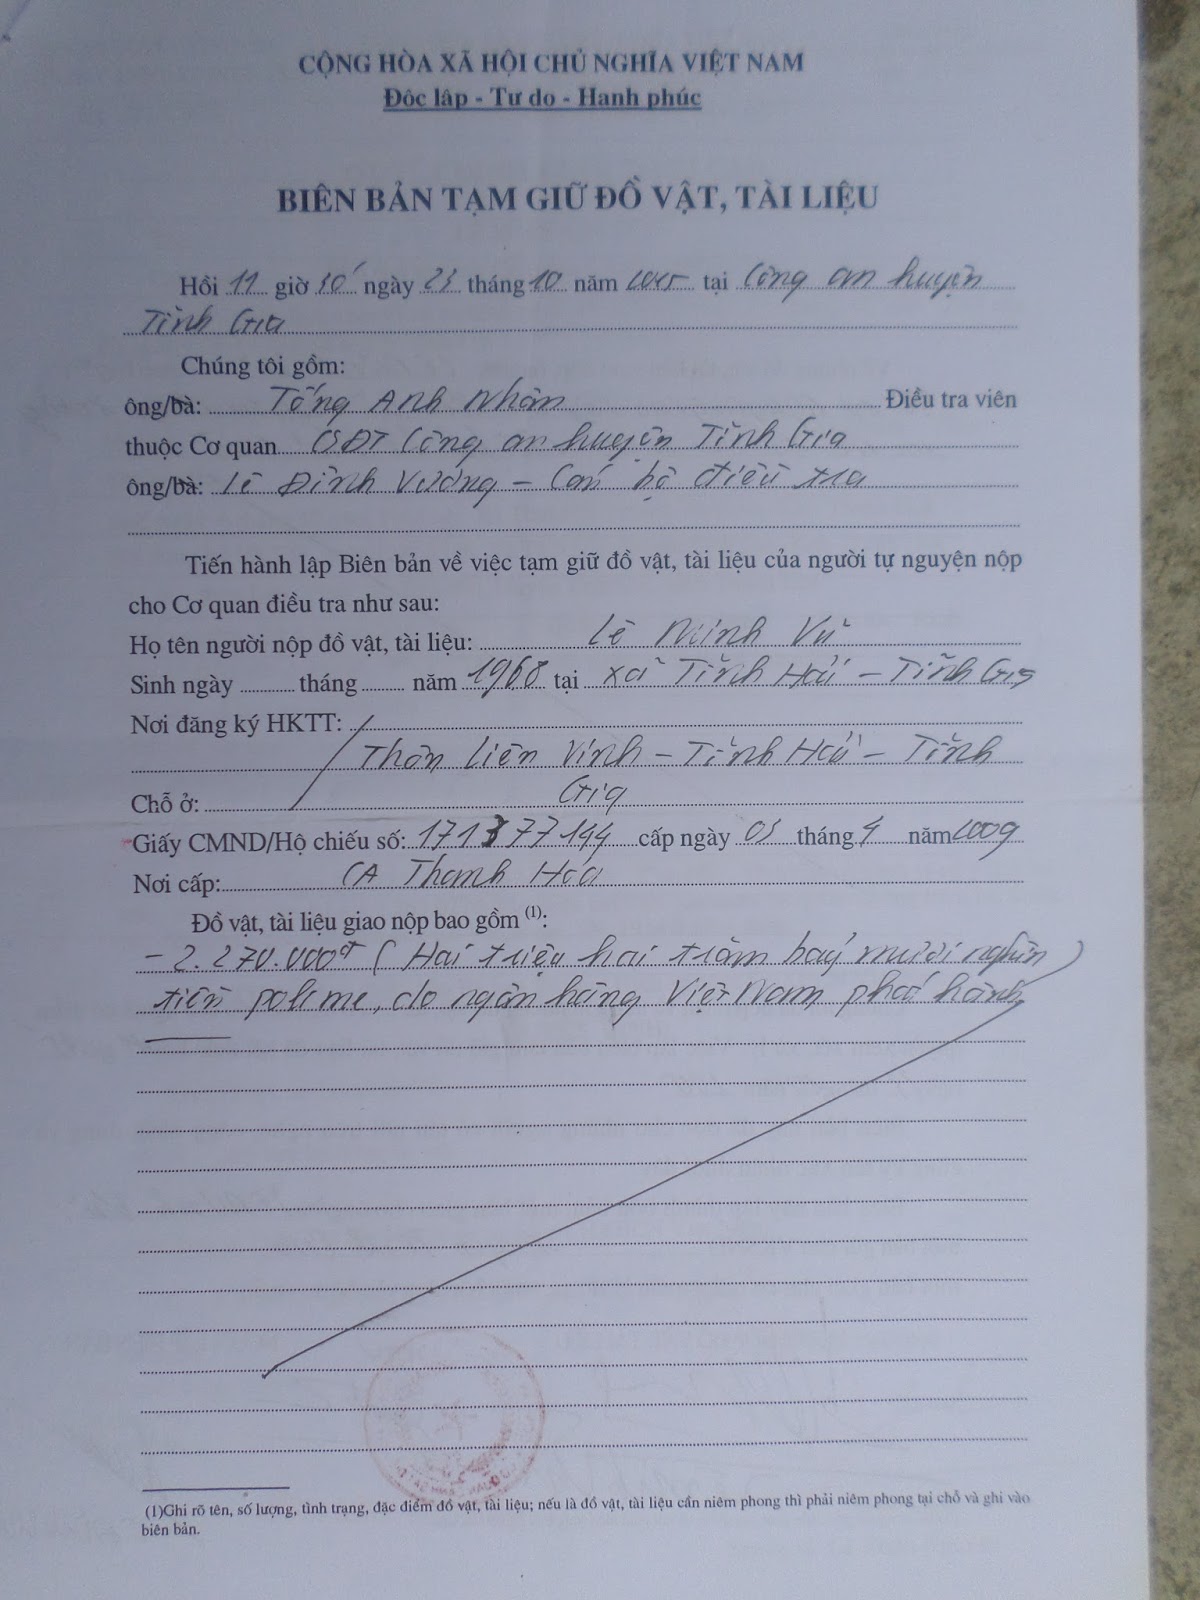 CỘNG HÒA XÃ HỘI CHỦ NGHĨA VIỆT NAM
Độc lập - Tự do - Hạnh phúc
BIÊN BẢN TẠM GIỮ ĐỒ VẬT, TÀI LIỆU
Hồi 11 giờ 30' ngày 23 tháng 10 năm 2015 tại Công an huyện
Tĩnh Gia
Chúng tôi gồm:
ông/bà: Tống Anh Nhân Điều tra viên
thuộc Cơ quan CSĐT Công an huyện Tĩnh Gia
ông/bà: Lê Đình Vương - Cán bộ điều tra
Tiến hành lập Biên bản về việc tạm giữ đồ vật, tài liệu của người tự nguyện nộp
cho Cơ quan điều tra như sau:
Họ tên người nộp đồ vật, tài liệu: Lê Minh Vũ
Sinh ngày tháng năm 1968 tại xã Tĩnh Hải - Tĩnh Gia
Nơi đăng ký HKTT:
Thôn Liên Vinh - Tĩnh Hải - Tĩnh
Chỗ ở: Gia
Giấy CMND/Hộ chiếu số: 171377144 cấp ngày 03 tháng 4 năm 2009
Nơi cấp: CA Thanh Hóa
Đồ vật, tài liệu giao nộp bao gồm (1):
- 2.270.000đ (Hai triệu hai trăm bảy mươi nghìn)
tiền polime, do ngân hàng Việt Nam phát hành
(1)Ghi rõ tên, số lượng, tình trạng, đặc điểm đồ vật, tài liệu; nếu là đồ vật, tài liệu cần niêm phong thì phải niêm phong tại chỗ và ghi vào
biên bản.